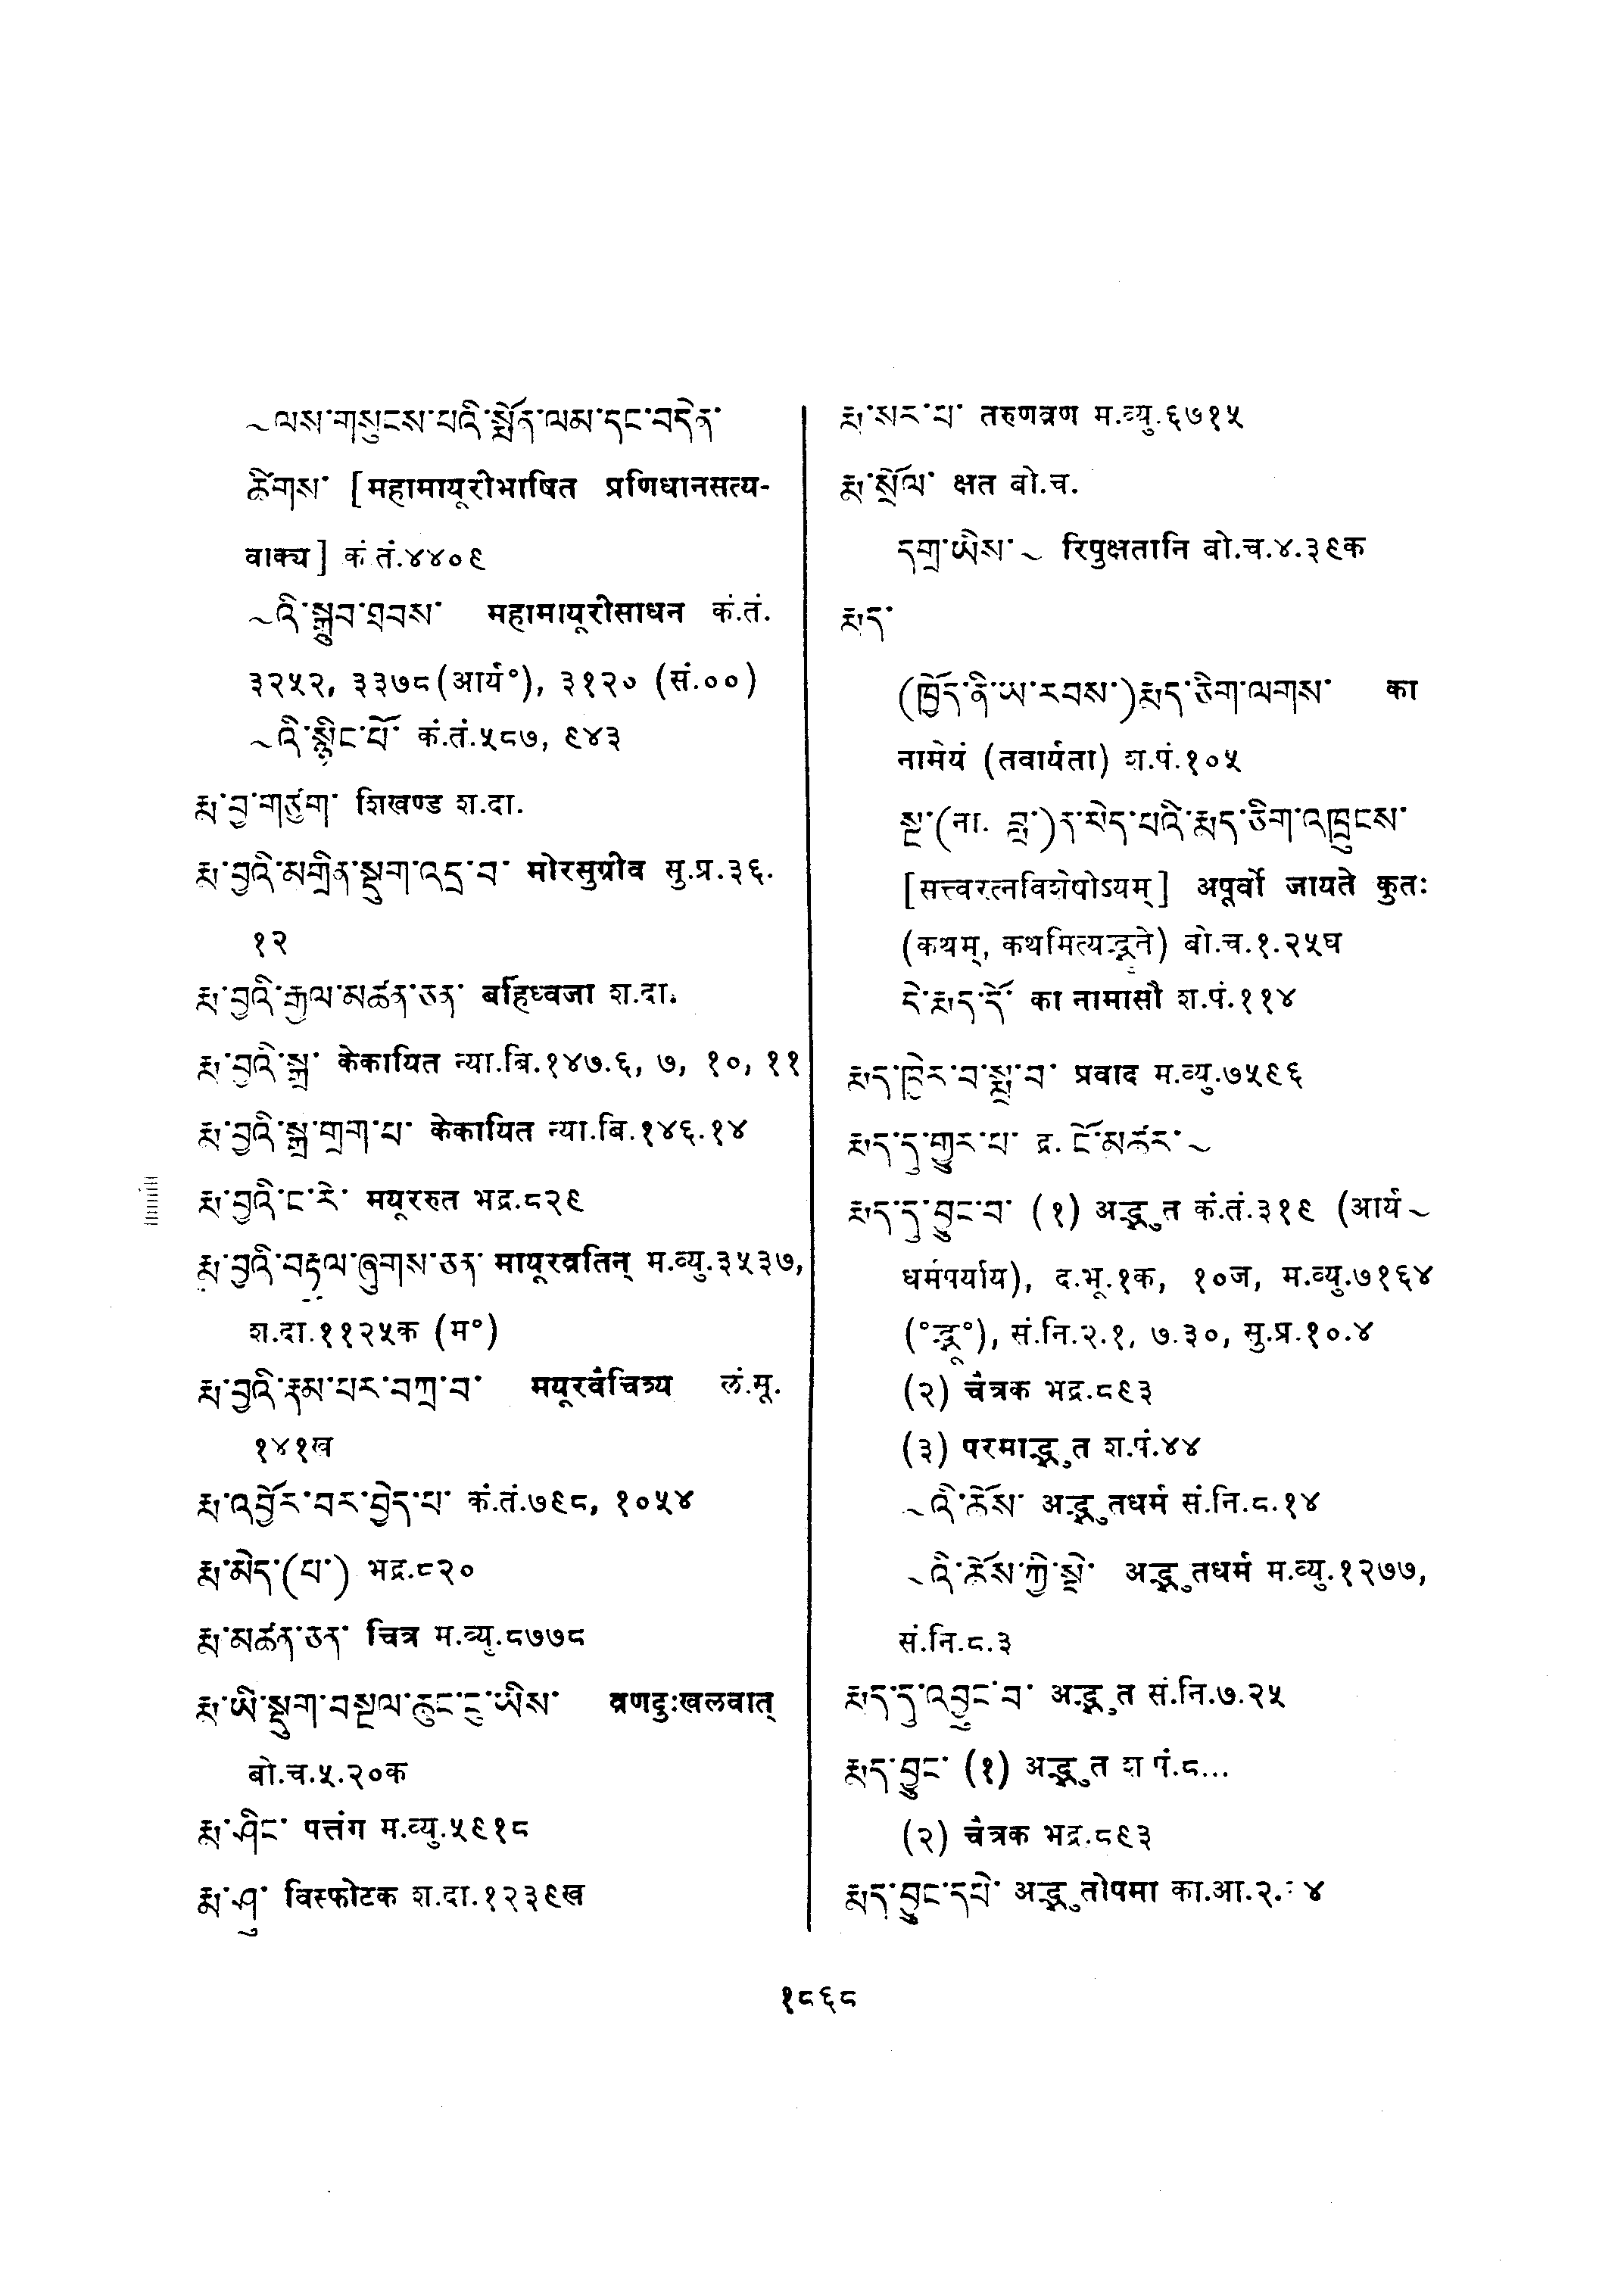 ~ལས་གསུངས་པའི་སྨོན་ལམ་དང་བདེན་
ཚིགས་ [महामायूरीभाषित प्रणिधानसत्य-
वाक्य] कं तं.४४०९
~འི་སྒྲུབ་ཐབས་ महामायूरीसाधन कं.तं.
३२५२, ३३७८(आर्य°), ३१२० (सं.००)
~འི་སྙིང་པོ་ कं.तं.५८७, ९४३
རྨ་བྱ་གཙུག་ शिखण्ड श.दा.
རྨ་བྱའི་མགྲིན་སྡུག་འདྲ་བ་ मोरसुग्रीव सु.प्र.३६.
१२
རྨ་བྱའི་རྒྱལ་མཚན་ཅན་ बर्हिध्वजा श.दा.
རྨ་བྱའི་སྒྲ་ केकायित न्या.बि.१४७.६, ७, १०, ११
རྨ་བྱའི་སྒྲ་གྲག་པ་ केकायित न्या.बि.१४६.१४
རྨ་བྱའི་ང་རོ་ मयूररुत भद्र.८२९
རྨ་བྱའི་བརྟུལ་ཞུགས་ཅན་ मायूरव्रतिन् म.व्यु.३५३७,
श.दा.११२५क (म°)
རྨ་བྱའི་རྣམ་པར་བཀྲ་བ་ मयूरवैचित्र्य लं.मू.
१४१ख
རྨ་འབྱོར་བར་བྱེད་པ་ कं.तं.७९८, १०५४
རྨ་མེད་(པ་) भद्र.८२०
རྨ་མཚན་ཅན་ चित्र म.व्यु.८७७८
རྨ་ཡི་སྡུག་བསྔལ་ཆུང་ངུ་ཡིས་ व्रणदुःखलवात्
बो.च.५.२०क
རྨ་ཤིང་ पत्तंग म.व्यु.५९१८
རྨ་ཤུ་ विस्फोटक श.दा.१२३९ख
རྨ་སར་པ་ तरुणव्रण म.व्यु.६७१५
རྨ་སྲོལ་ क्षत बो.च.
དགྲ་ཡིས་~ रिपुक्षतानि बो.च.४.३९क
རྨད་
(ཁྱོད་ནི་ཡ་རབས་)རྨད་ཅིག་ལགས་ का
नामेयं (तवार्यता) श.पं.१०५
སྔ་(ना. བླ་)ན་མེད་པའི་རྨད་ཅིག་འཁྲུངས་
[सत्त्वरत्नविशेषोऽयम्] अपूर्वो जायते कुतः
(कथम्, कथमित्यद्भूते) बो.च.१.२५घ
དེ་རྨད་དོ་ का नामासौ श.पं.११४
རྨད་ཁྱེར་བ་སྨྲ་བ་ प्रवाद म.व्यु.७५९६
རྨད་དུ་གྱུར་པ་ द्र. ངོ་མཚར་~
རྨད་དུ་བྱུང་བ་ (१) अद्भुत कं.तं.३१९ (आर्य~
धर्मपर्याय), द.भू.१क, १०ज, म.व्यु.७१६४
(°द्भू°), सं.नि.२.१, ७.३०, सु.प्र.१०.४
(२) चैत्रक भद्र.८९३
(३) परमाद्भुत श.पं.४४
~འི་ཆོས་ अद्भुतधर्म सं.नि.८.१४
~འི་ཆོས་ཀྱི་སྡེ་ अद्भुतधर्म म.व्यु.१२७७,
सं.नि.८.३
རྨད་དུ་འབྱུང་བ་ अद्भुत सं.नि.७.२५
རྨད་བྱུང་ (१) अद्भुत श पं.८...
(२) चैत्रक भद्र.८९३
རྨད་བྱུང་དཔེ་ अद्भुतोपमा का.आ.२. ४
१८६८